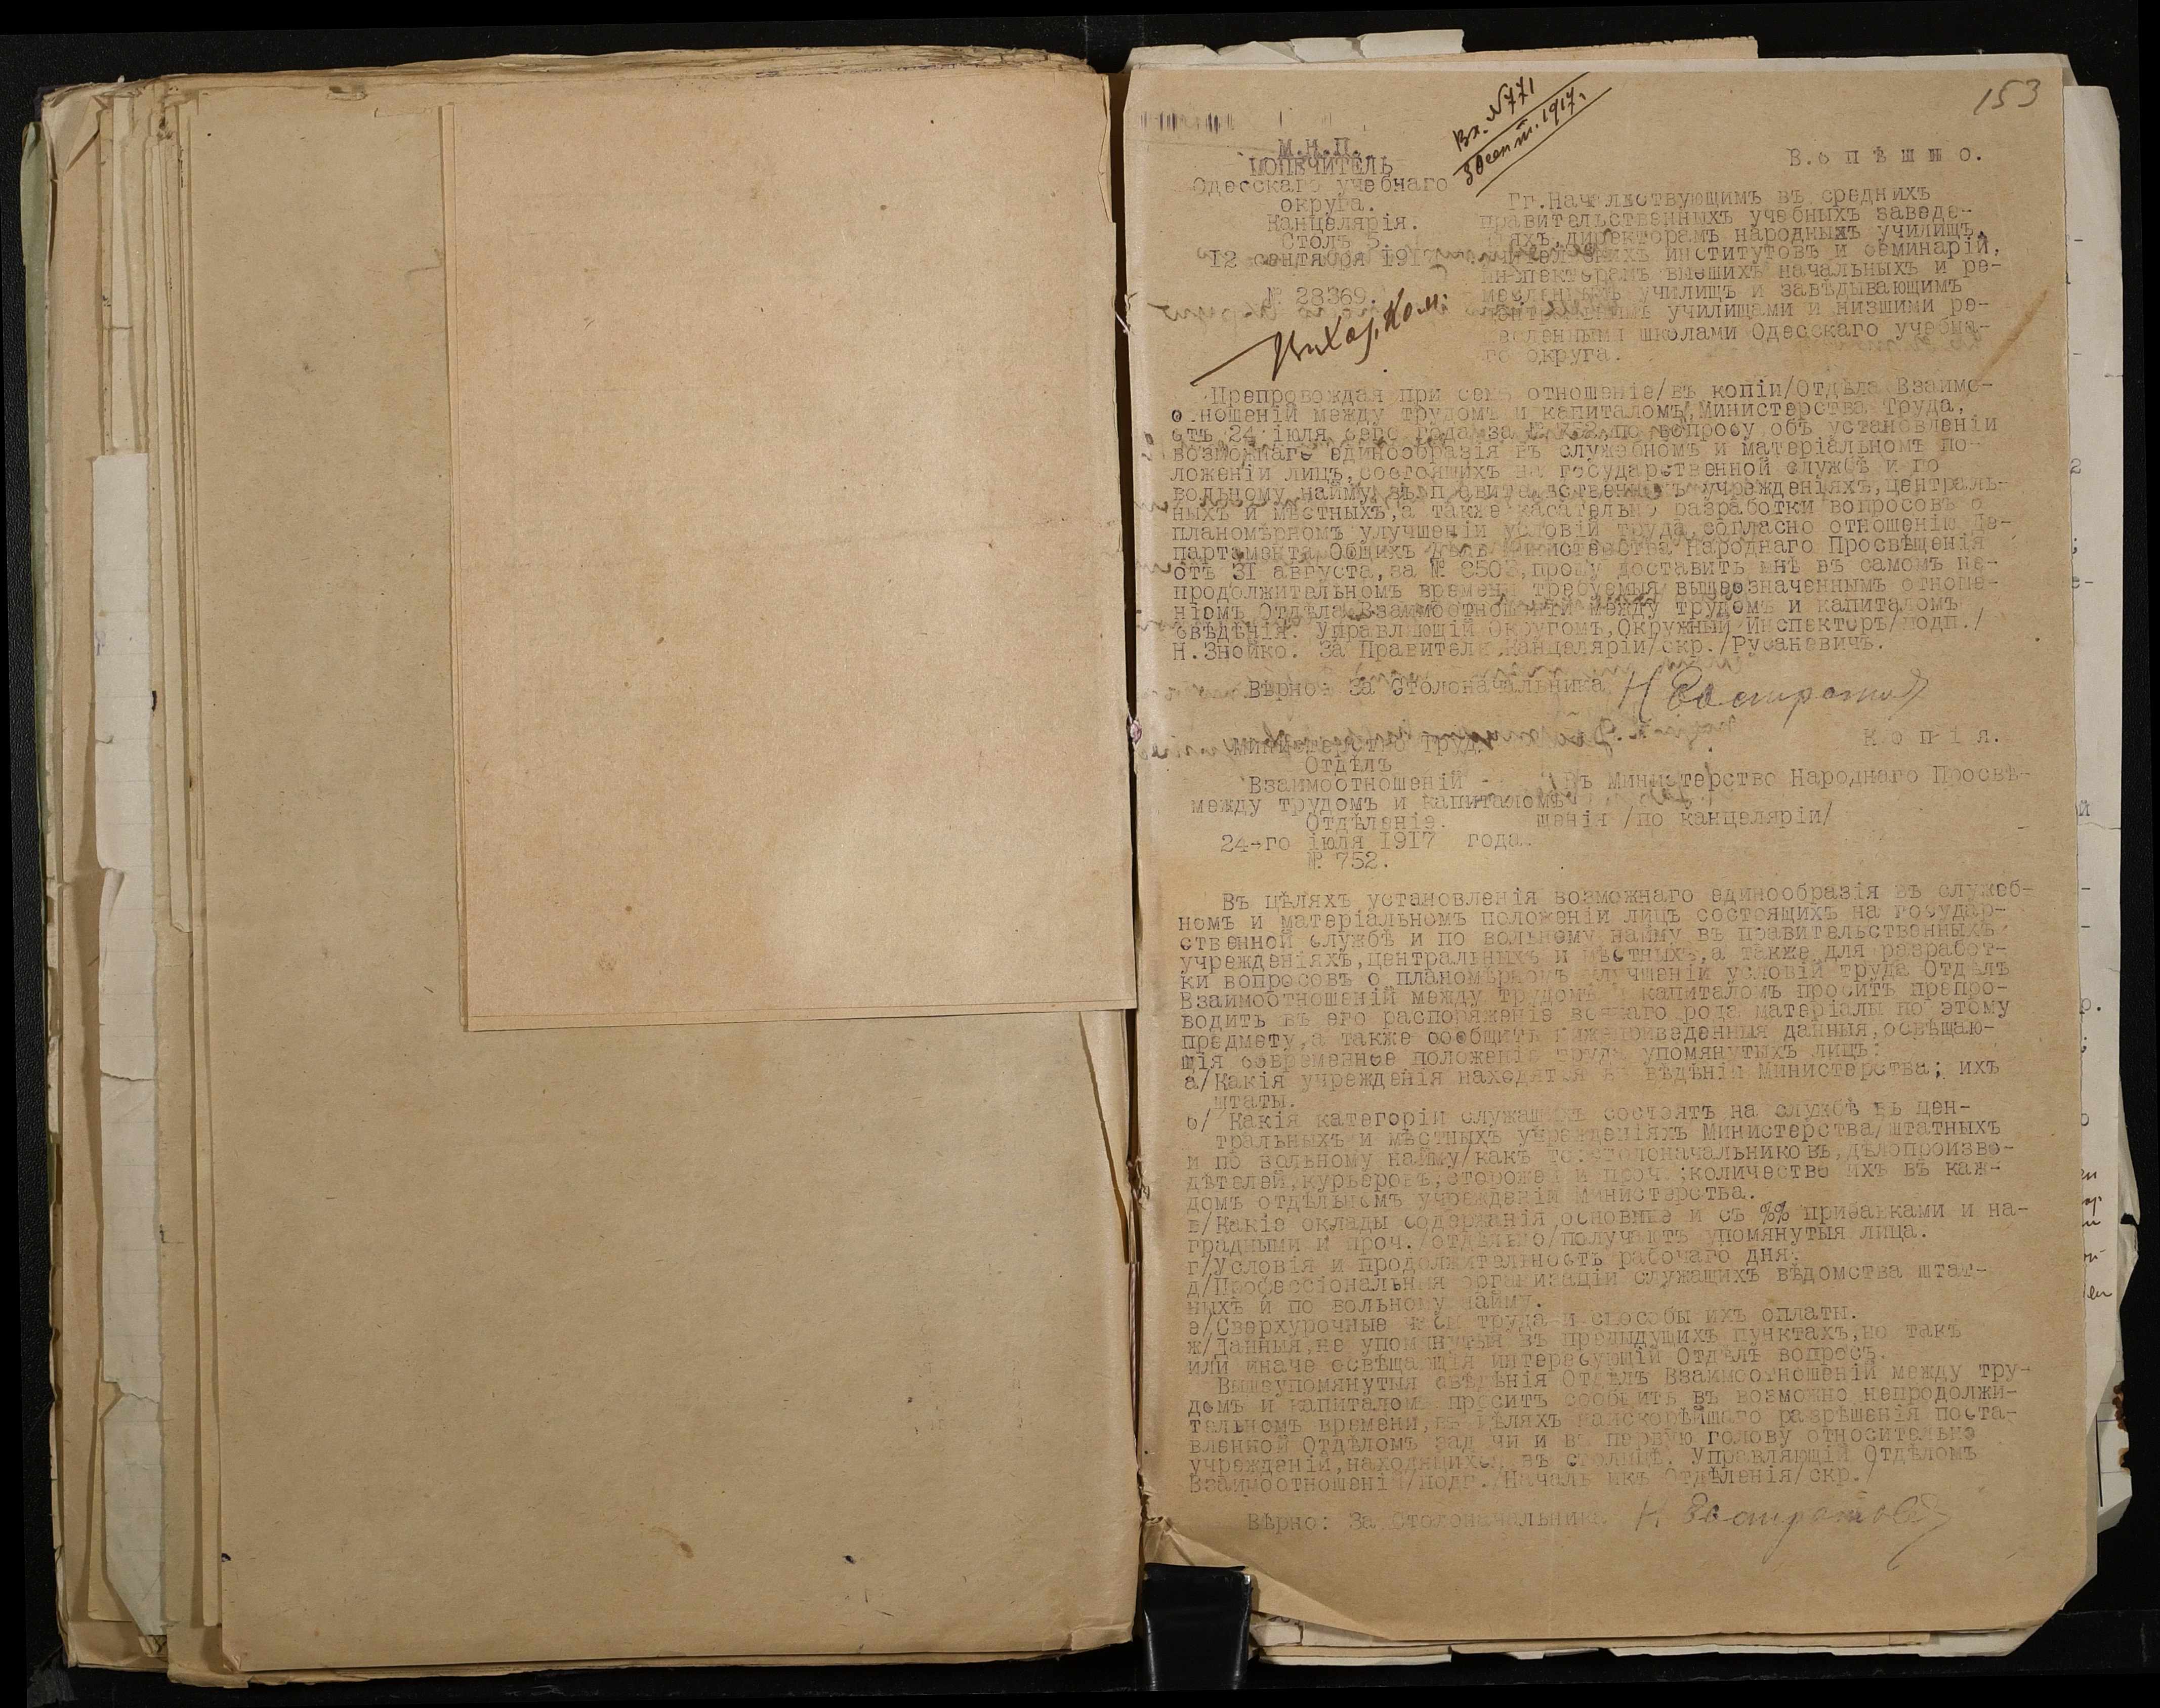 153
Вх. №771
30 сент. 1917 г.
М.Н.П.
ПОПЕЧИТЕЛЬ
Одесскаго учебнаго
округа.
Канцелярія.
Столъ 5.
12 сентября 191
№ 28369.
В.с п ѣ ш н о.
Гг.Начальствующимъ въ среднихъ
правительственныхъ учебныхъ заведе-
ніяхъ, директорамъ народныхъ училищъ,
учительскихъ институтовъ и семинарій,
инспекторамъ высшихъ начальныхъ и ре-
месленныхъ училищъ и завѣдывающимъ
училищами и низшими ре-
месленными школами Одесскаго учебна-
го округа.
Препровождая при семъ отношеніе/въ копіи/Отдѣла Взаимо-
отношеній между трудомъ и капиталомъ, Министерства Труда,
отъ 24 іюля сего года за № 752,по вопросу объ установленіи
возможнаго единообразія въ служебномъ и матеріальномъ по-
ложеніи лицъ,состоящихъ на государственной службѣ и по
вольному найму въ правительственныхъ учрежденіяхъ,централь-
ныхъ и мѣстныхъ,а также касательно разработки вопросовъ о
планомѣрномъ улучшеніи условій труда,согласно отношенію Де-
партамента Общихъ Дѣлъ Министерства Народнаго Просвѣщенія
отъ 31 августа,за № 6503,прошу доставить мнѣ въ самомъ не-
продолжительномъ времени требуемыя вышеозначеннымъ отноше-
ніемъ Отдѣла Взаимоотношеній между трудомъ и капиталомъ
свѣдѣнія. Управляющій Округомъ,Окружный Инспекторъ/подп./
Н.Знойко. За Правителя Канцеляріи/скр./Русановичъ.
Вѣрно: За Столоначальника
Министерство Труда
Отдѣлъ
Взаимоотношеній
между трудомъ и капиталомъ
Отдѣленіе.
24-го іюля 1917 года.
№ 752.
К о п і я.
Въ Министерство Народнаго Просвѣ-
щенія /по канцеляріи/
Въ цѣляхъ установленія возможнаго единообразія въ служеб-
номъ и матеріальномъ положеніи лицъ состоящихъ на государ-
ственной службѣ и по вольному найму въ правительственныхъ
учрежденіяхъ,центральныхъ и мѣстныхъ,а также для разработ-
ки вопросовъ о планомѣрномъ улучшеніи условій труда Отдѣлъ
Взаимоотношеній между трудомъ и капиталомъ проситъ препро-
водить въ его распоряженіе всякаго рода матеріалы по этому
предмету,а также сообщить нижеприведенныя данныя,освѣщаю-
щія современное положеніе труда упомянутыхъ лицъ:
а/Какія учрежденія находятся въ вѣдѣніи Министерства; ихъ
штаты.
б/ Какія категоріи служащихъ состоятъ на службѣ въ цен-
тральныхъ и мѣстныхъ учрежденіяхъ Министерства/штатныхъ
и по вольному найму/какъ то:столоначальниковъ,дѣлопроизво-
дителей,курьеровъ,сторожей и проч.;количество ихъ въ каж-
домъ отдѣльномъ учрежденіи Министерства.
в/Какіе оклады содержанія,основные и съ %% прибавками и на-
градными и проч./отдѣльно/получаютъ упомянутыя лица.
г/Условія и продолжительность рабочаго дня.
д/Профессіональныя организаціи служащихъ вѣдомства штат-
ныхъ и по вольному найму.
е/Сверхурочные часы труда и способы ихъ оплаты.
ж/Данныя,не упомянутыя въ предыдущихъ пунктахъ,но такъ
или иначе освѣщающія интересующій Отдѣлъ вопросъ.
Вышеупомянутыя свѣдѣнія Отдѣлъ Взаимоотношеній между тру-
домъ и капиталомъ проситъ сообщить въ возможно непродолжи-
тельномъ времени,въ цѣляхъ наискорѣйшаго разрѣшенія поста-
вленной Отдѣломъ задачи и въ первую голову относительно
учрежденій,находящихся въ столицѣ. Управляющій Отдѣломъ
Взаимоотношеній/подп./Начальникъ Отдѣленія/скр./
Вѣрно: За Столоначальника